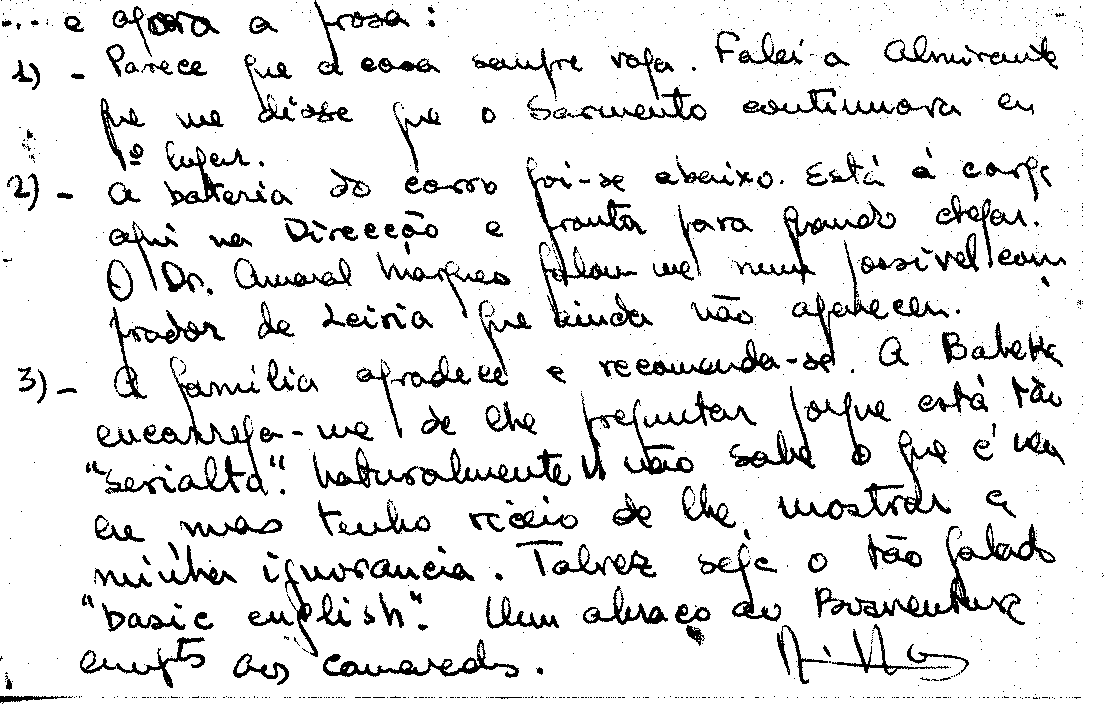 ... e agora a prosa:
1) - Parece que a casa sempre vaga. Falei a Almirante
que me disse que o Sarmento continuava em
1º lugar.
2) - A bateria do carro foi-se abaixo. Está à carga
aqui na Direcção e pronta para quando chegar.
O Dr. Amaral Marques falou-me num possivel com
prador de Leiria que ainda não apareceu.
3) - A família agradece e recomenda-se. A Babette
encarrega-me de lhe preguntar porque está tão
"serialta". Naturalmente V não sabe o que é nem
eu mas tenho receio de lhe mostrar a
minha ignorancia. Talvez seja o tão falado
"basic english". Um abraço do Boaventura
cumpts aos camaradas.